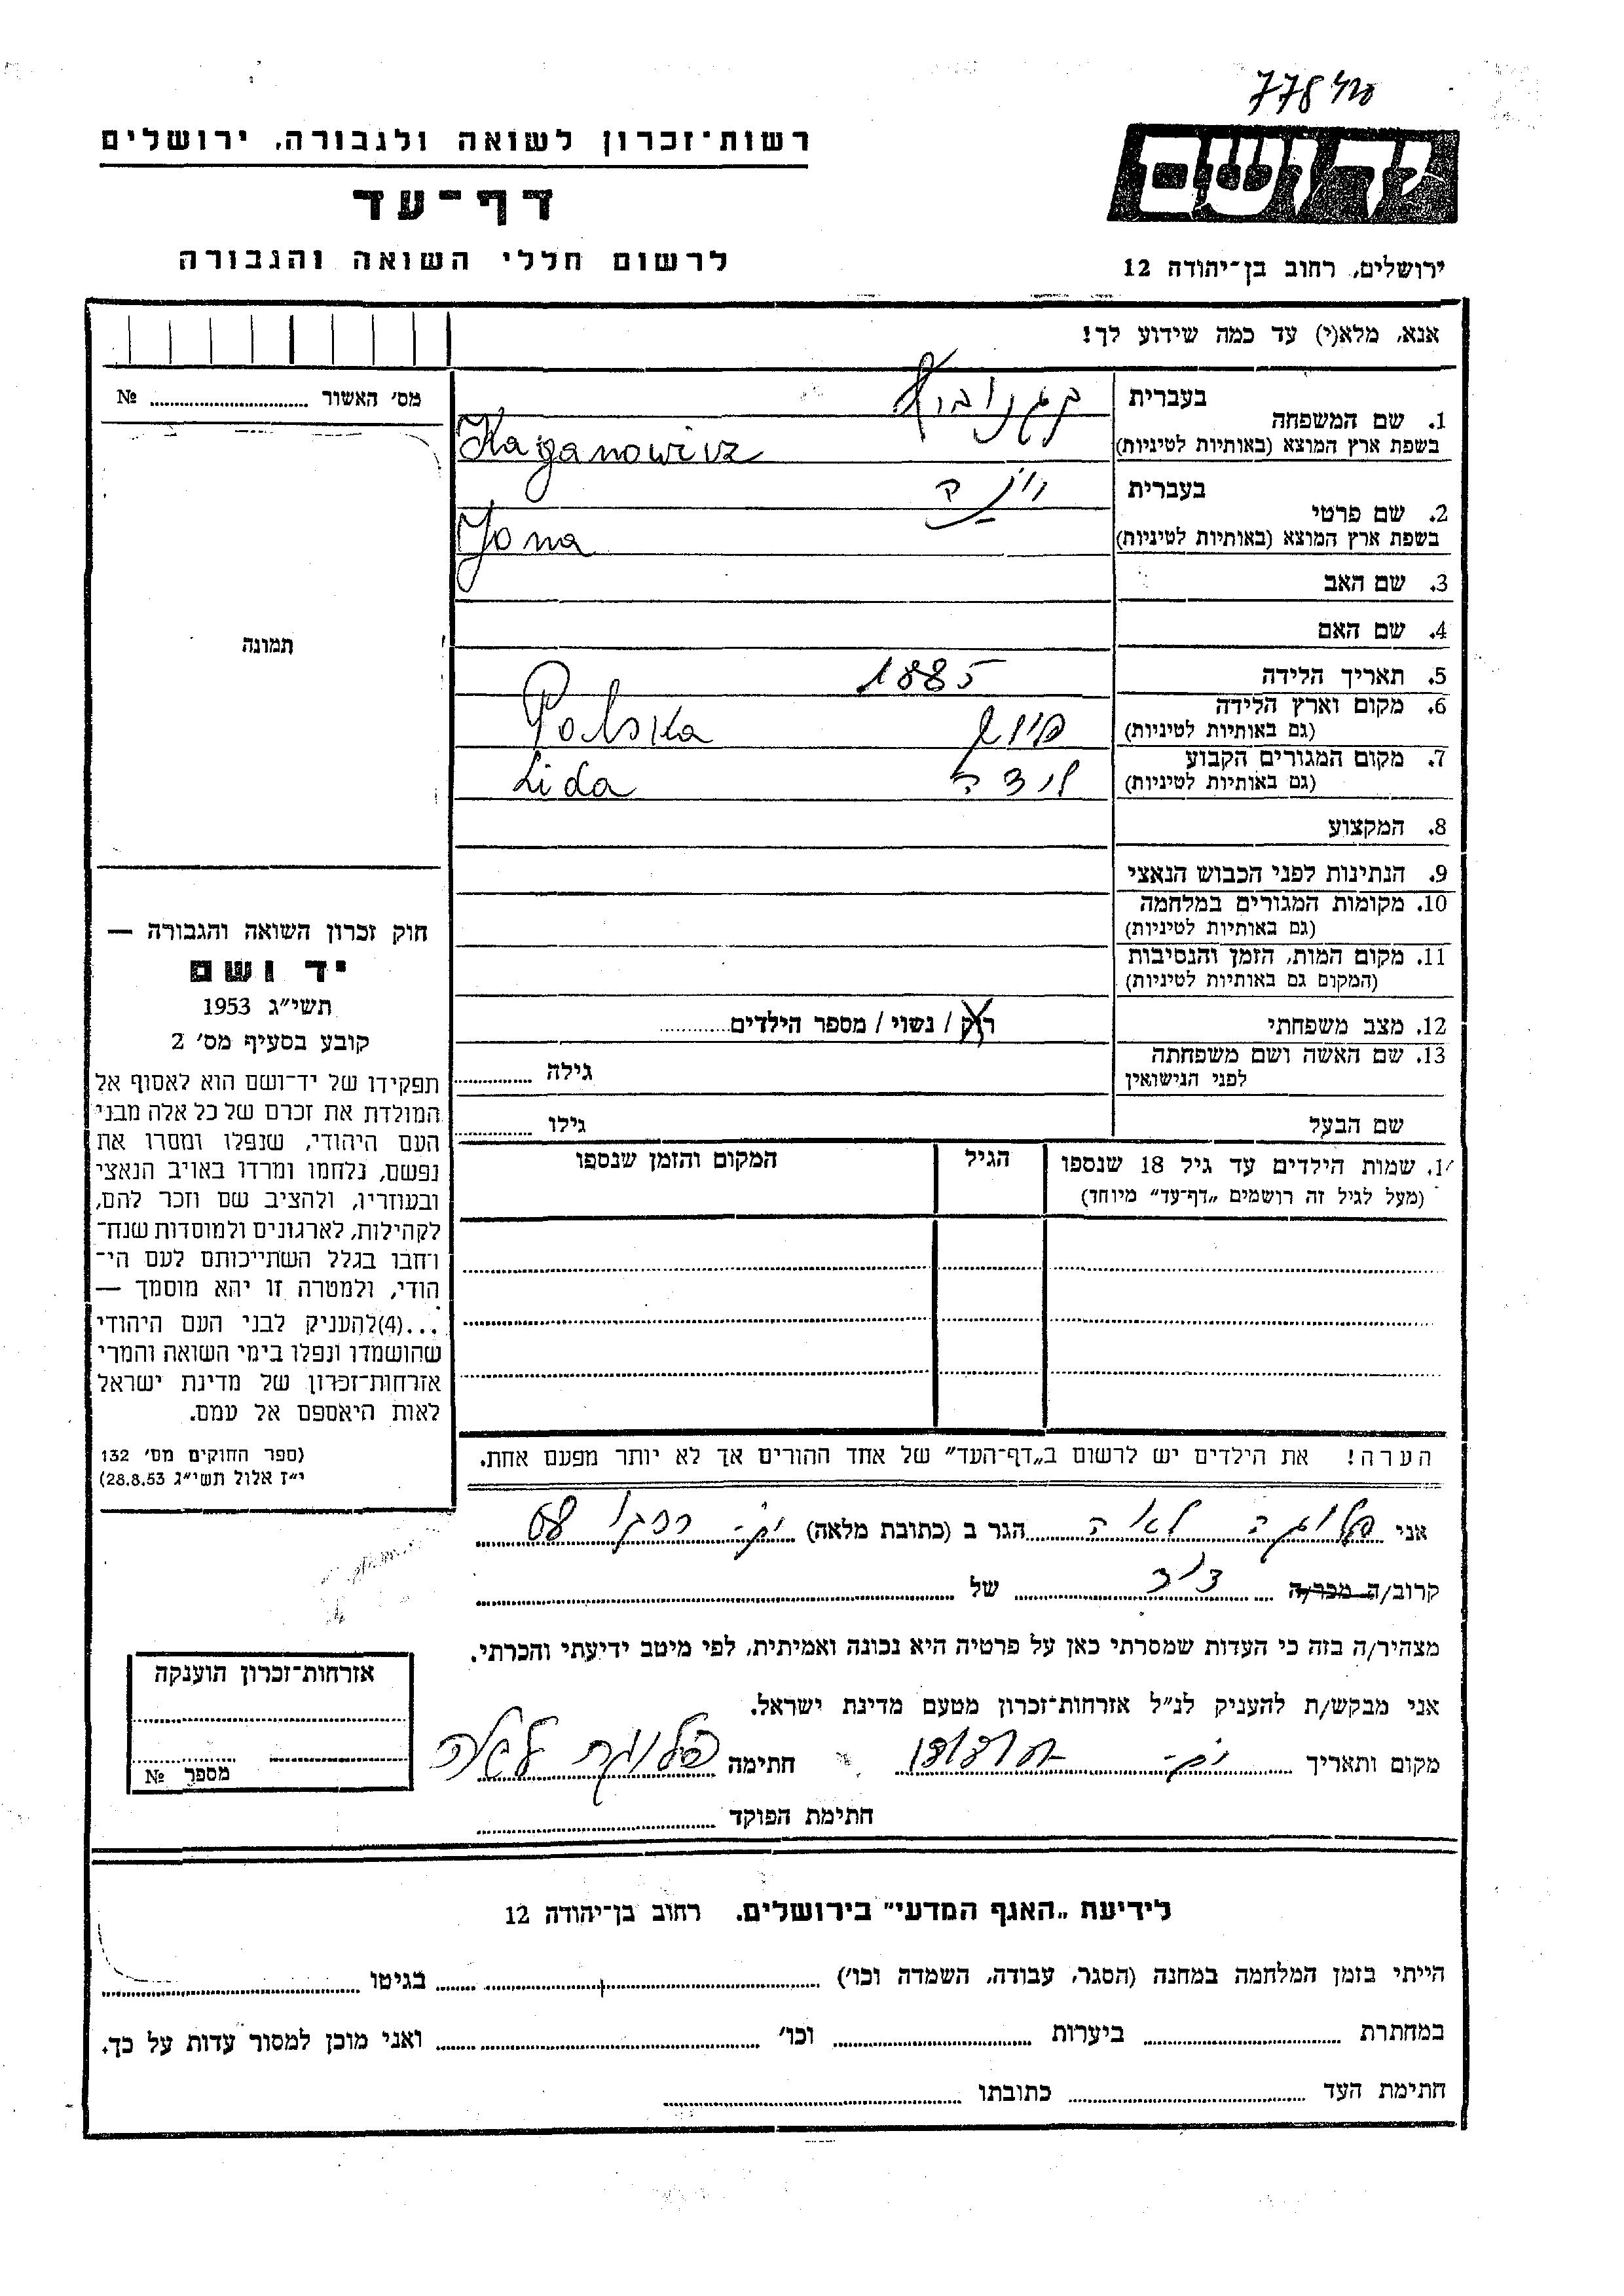 778
רשות־זכרון לשואה ולגבורה, ירושלים
דף־עד
לרשום חללי השואה והגבורה
יד ושם
ירושלים, רחוב בן־יהודה 12
אנא, מלא(י) עד כמה שידוע לך!
מס׳ האשור ........ №
1. שם המשפחה
בעברית
קגנוביץ
בשפת ארץ המוצא (באותיות לטיניות)
Kaganowicz
2. שם פרטי
בעברית
יונה
בשפת ארץ המוצא (באותיות לטיניות)
Jona
3. שם האב
4. שם האם
5. תאריך הלידה 1885
6. מקום וארץ הלידה
(גם באותיות לטיניות)
Polska
7. מקום המגורים הקבוע
(גם באותיות לטיניות)
לידה Lida
8. המקצוע
9. הנתינות לפני הכבוש הנאצי
10. מקומות המגורים במלחמה
(גם באותיות לטיניות)
11. מקום המות, הזמן והנסיבות
(המקום גם באותיות לטיניות)
12. מצב משפחתי
רוק / נשוי / מספר הילדים........
13. שם האשה ושם משפחתה
לפני הנישואין
גילה ........
שם הבעל
גילו ........
תמונה
חוק זכרון השואה והגבורה —
יד ושם
תשי״ג 1953
קובע בסעיף מס׳ 2
תפקידו של יד־ושם הוא לאסוף אל
המולדת את זכרם של כל אלה מבני
העם היהודי, שנפלו ומסרו את
נפשם, נלחמו ומרדו באויב הנאצי
ובעוזריו, ולהציב שם וזכר להם,
לקהילות, לארגונים ולמוסדות שנח־
רחבו בגלל השתייכותם לעם הי־
הודי, ולמטרה זו יהא מוסמך —
...(4)להעניק לבני העם היהודי
שהושמדו ונפלו בימי השואה והמרי
אזרחות־זכרון של מדינת ישראל
לאות היאספם אל עמם.
(ספר החוקים מס׳ 132
י״ז אלול תשי״ג 28.8.53)
1. שמות הילדים עד גיל 18 שנספו
(מעל לגיל זה רושמים „דף־עד״ מיוחד)
הגיל
המקום והזמן שנספו
הערה! את הילדים יש לרשום ב„דף־העד״ של אחד ההורים אך לא יותר מפעם אחת.
אני לאה הגר ב (כתובת מלאה)
קרוב/ה מכר/ה דוד של ........
מצהיר/ה בזה כי העדות שמסרתי כאן על פרטיה היא נכונה ואמיתית, לפי מיטב ידיעתי והכרתי.
אני מבקש/ת להעניק לנ״ל אזרחות־זכרון מטעם מדינת ישראל.
מקום ותאריך
חתימה
חתימת הפוקד ........
אזרחות־זכרון הוענקה
מספר №
לידיעת „האגף המדעי״ בירושלים. רחוב בן־יהודה 12
הייתי בזמן המלחמה במחנה (הסגר, עבודה, השמדה וכו׳) ........ בגיטו ........
במחתרת ........ ביערות ........ וכו׳ ........ ואני מוכן למסור עדות על כך.
חתימת העד ........ כתובתו ........